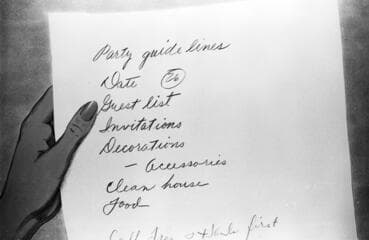 Party guide lines
Date 26
Guest list
Invitations
Decorations
- Accessories
Clean house
Food
first